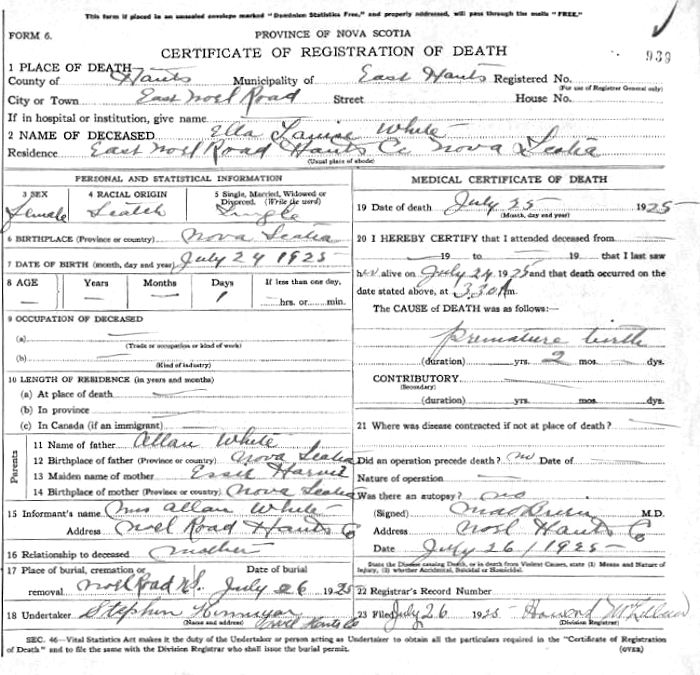 This form if placed in an unsealed envelope marked "Dominion Statistics Free," and properly addressed, will pass through the mails "FREE."
FORM 6.
PROVINCE OF NOVA SCOTIA
CERTIFICATE OF REGISTRATION OF DEATH
939
1 PLACE OF DEATH
County of Hants Municipality of East Hants Registered No.
(For use of Registrar General only)
City or Town East Noel Road Street House No.
If in hospital or institution, give name
2 NAME OF DECEASED Ella Louise White
Residence East Noel Road Hants Co. Nova Scotia
(Usual place of abode)
PERSONAL AND STATISTICAL INFORMATION
3 SEX 4 RACIAL ORIGIN 5 Single, Married, Widowed or Divorced. (Write the word)
Female Scotch Single
6 BIRTHPLACE (Province or country) Nova Scotia
7 DATE OF BIRTH (month, day and year) July 24 1925
8 AGE Years Months Days If less than one day,
— — — 1 hrs. or min.
9 OCCUPATION OF DECEASED
(a)
(Trade or occupation or kind of work)
(b)
(Kind of industry)
10 LENGTH OF RESIDENCE (in years and months)
(a) At place of death
(b) In province
(c) In Canada (if an immigrant)
Parents
11 Name of father Allan White
12 Birthplace of father (Province or country) Nova Scotia
13 Maiden name of mother Essie
14 Birthplace of mother (Province or country) Nova Scotia
15 Informant's name Mrs Allan White
Address Noel Road Hants Co
16 Relationship to deceased mother
17 Place of burial, cremation or removal Date of burial
Noel Road N.S. July 26 1925
18 Undertaker Stephen
(Name and address) Noel Hants Co
MEDICAL CERTIFICATE OF DEATH
19 Date of death July 25 1925
(Month, day and year)
20 I HEREBY CERTIFY that I attended deceased from
19 to 19 that I last saw
her alive on July 24 1925 and that death occurred on the
date stated above, at 3.30 A m.
The CAUSE of DEATH was as follows:
premature birth
(duration) yrs. 2 mos. dys.
CONTRIBUTORY
(Secondary)
(duration) yrs. mos. dys.
21 Where was disease contracted if not at place of death?
Did an operation precede death? no Date of
Nature of operation
Was there an autopsy? no
(Signed) M.D.
Address Noel Hants Co
Date July 26/1925
State the Disease causing Death, or in death from Violent Causes, state (1) Means and Nature of Injury, (2) whether Accidental, Suicidal or Homicidal.
22 Registrar's Record Number
23 Filed July 26 1925 Howard
(Division Registrar)
SEC. 46—Vital Statistics Act makes it the duty of the Undertaker or person acting as Undertaker to obtain all the particulars required in the "Certificate of Registration
of Death" and to file the same with the Division Registrar who shall issue the burial permit. (OVER)